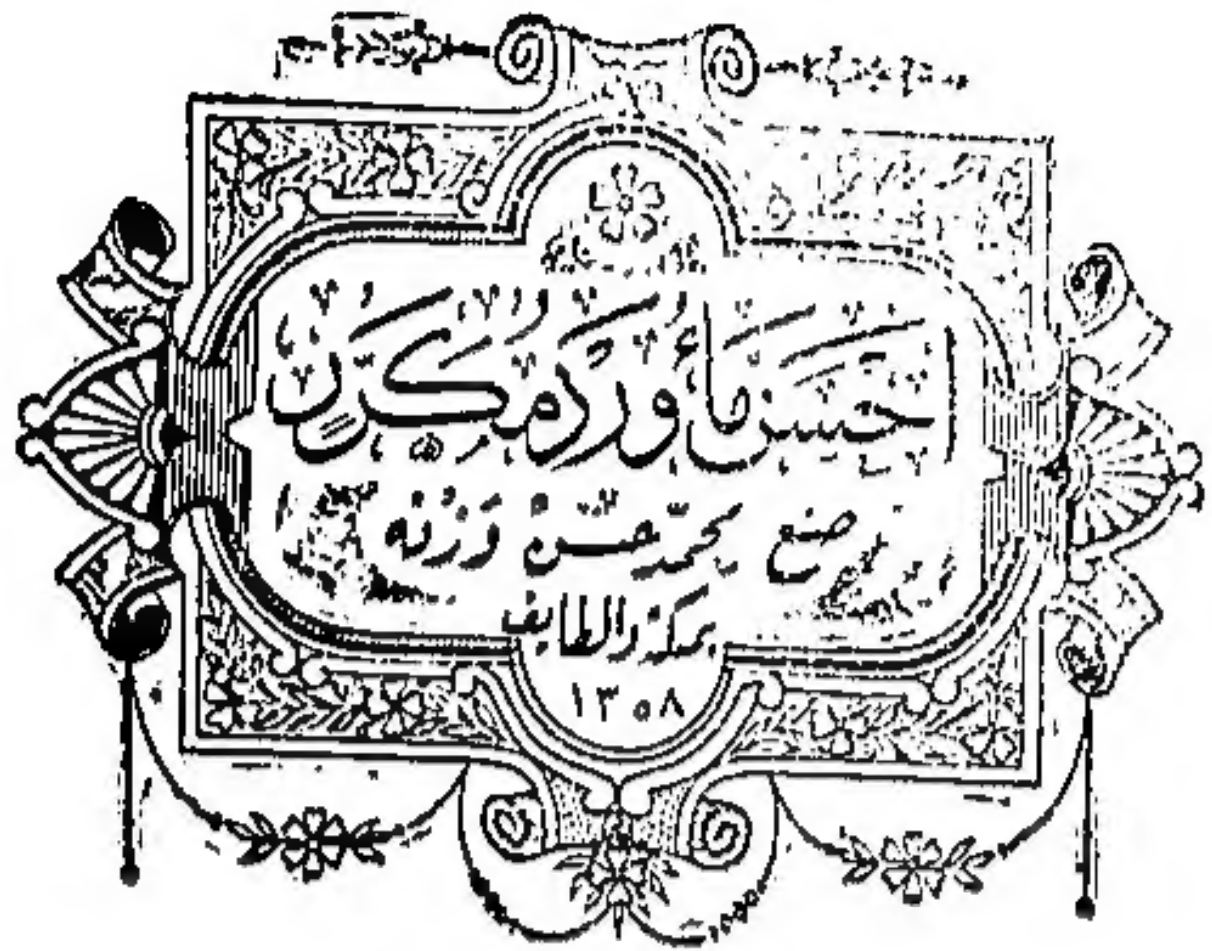 احسن مأ ورد مكرر
صنع محمد حسن وزنه
بمكة والطايف
١٣٥٨